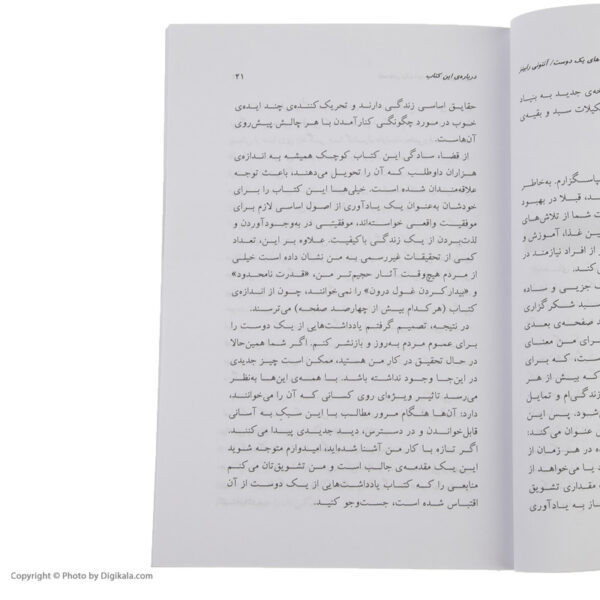 های یک دوست/ آنتونی رابینز
خه‌ی جدید به بنیاد
تشکیلات سبد و بقیه‌ی
سپاسگزارم. به‌خاطر
ند، قبلا در بهبود
ت شما از تلاش‌های
ین غذا، آموزش و
از افراد نیازمند در
کنند.
ک جزیی و ساده
سبد شکرگزاری
صفحه‌ی بعدی
رای من معنای
ست، که برای
که بیش از هر
زندگی‌ام و تمایل
شود. پس این
عنوان می‌کند:
در هر زمان از
د یا می‌خواهد از
مقداری تشویق
از به یادآوری
درباره‌ی این کتاب ۲۱
حقایق اساسی زندگی دارند و تحریک‌کننده‌ی چند ایده‌ی
خوب در مورد چگونگی کنارآمدن با هر چالش پیش‌روی
آن‌هاست.
از قضا، سادگی این کتاب کوچک همیشه به اندازه‌ی
هزاران داوطلب که آن را تحویل می‌دهند، باعث توجه
علاقه‌مندان شده است. خیلی‌ها این کتاب را برای
خودشان به‌عنوان یک یادآوری از اصول اساسی لازم برای
موفقیت واقعی خواسته‌اند، موفقیتی در به‌وجودآوردن و
لذت‌بردن از یک زندگی باکیفیت. علاوه بر این، تعداد
کمی از تحقیقات غیررسمی به من نشان داده است خیلی
از مردم هیچ‌وقت آثار حجیم‌تر من، «قدرت نامحدود»
و «بیدارکردن غول درون» را نمی‌خوانند، چون از اندازه‌ی
کتاب (هرکدام بیش از چهارصد صفحه) می‌ترسند.
در نتیجه، تصمیم گرفتم یادداشت‌هایی از یک دوست را
برای عموم مردم به‌روز و بازنشر کنم. اگر شما همین‌حالا
در حال تحقیق در کار من هستید، ممکن است چیز جدیدی
در این‌جا وجود نداشته باشد. با همه‌ی این‌ها به‌نظر
می‌رسد تاثیر ویژه‌ای روی کسانی که آن را می‌خوانند،
دارد: آن‌ها هنگام مرور مطالب با این سبک به آسانی
قابل‌خواندن و در دسترس، دید جدیدی پیدا می‌کنند.
اگر تازه با کار من آشنا شده‌اید، امیدوارم متوجه شوید
این یک مقدمه‌ی جالب است و من تشویق‌تان می‌کنم
منابعی را که کتاب یادداشت‌هایی از یک دوست از آن
اقتباس شده است، جست‌وجو کنید.
Copyright © Photo by Digikala.com